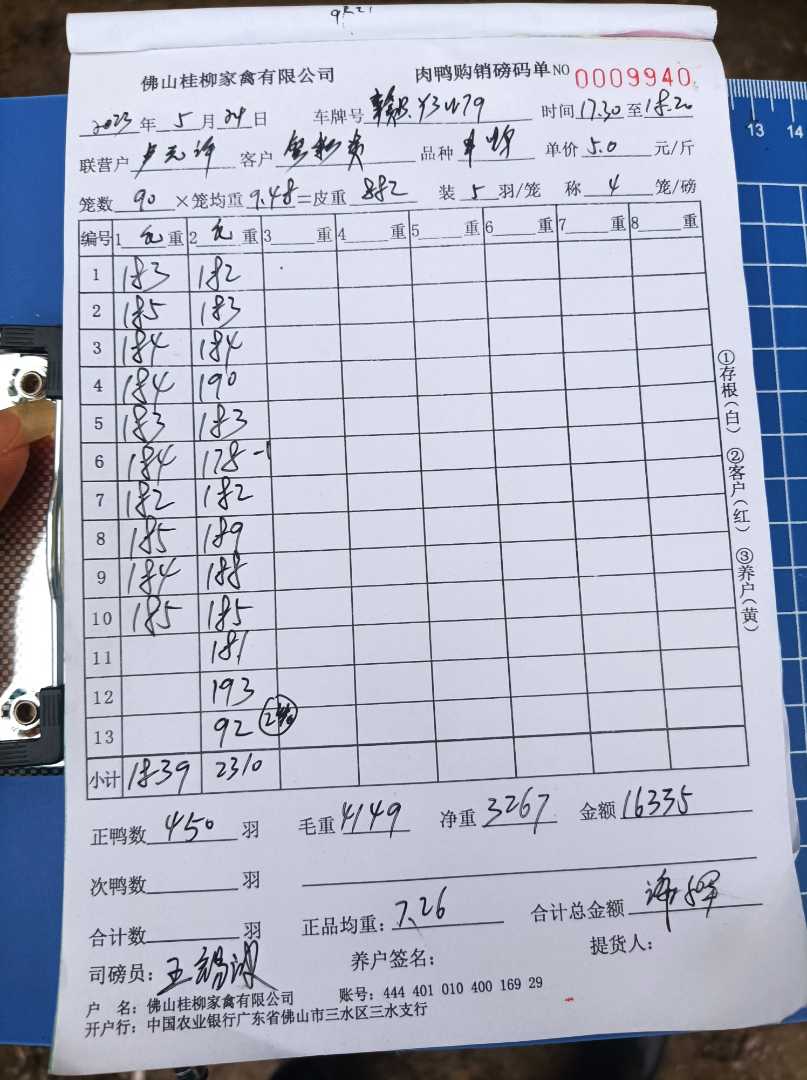 佛山桂柳家禽有限公司 肉鸭购销磅码单 NO 0009940
2023年 5月 24日 车牌号 Y3W79 时间 17.30 至 18.20
联营户 卢元许 客户 品种 单价 5.0 元/斤
笼数 90 ×笼均重 9.48 =皮重 882 装 5 羽/笼 称 4 笼/磅
编号 1 毛 重 2 毛 重 3 重 4 重 5 重 6 重 7 重 8 重
1 183 182
2 185 183
3 184 184
4 184 190
5 183 183
6 184 178 -1
7 182 182
8 185 189
9 184 188
10 185 185
11 181
12 193
13 92
小计 1839 2310
正鸭数 450 羽 毛重 4149 净重 3267 金额 16335
次鸭数 羽
合计数 羽 正品均重: 7.26 合计总金额
司磅员: 养户签名: 提货人:
户 名: 佛山桂柳家禽有限公司 账号: 444 401 010 400 169 29
开户行: 中国农业银行广东省佛山市三水区三水支行
①存根(白) ②客户(红) ③养户(黄)
13 14